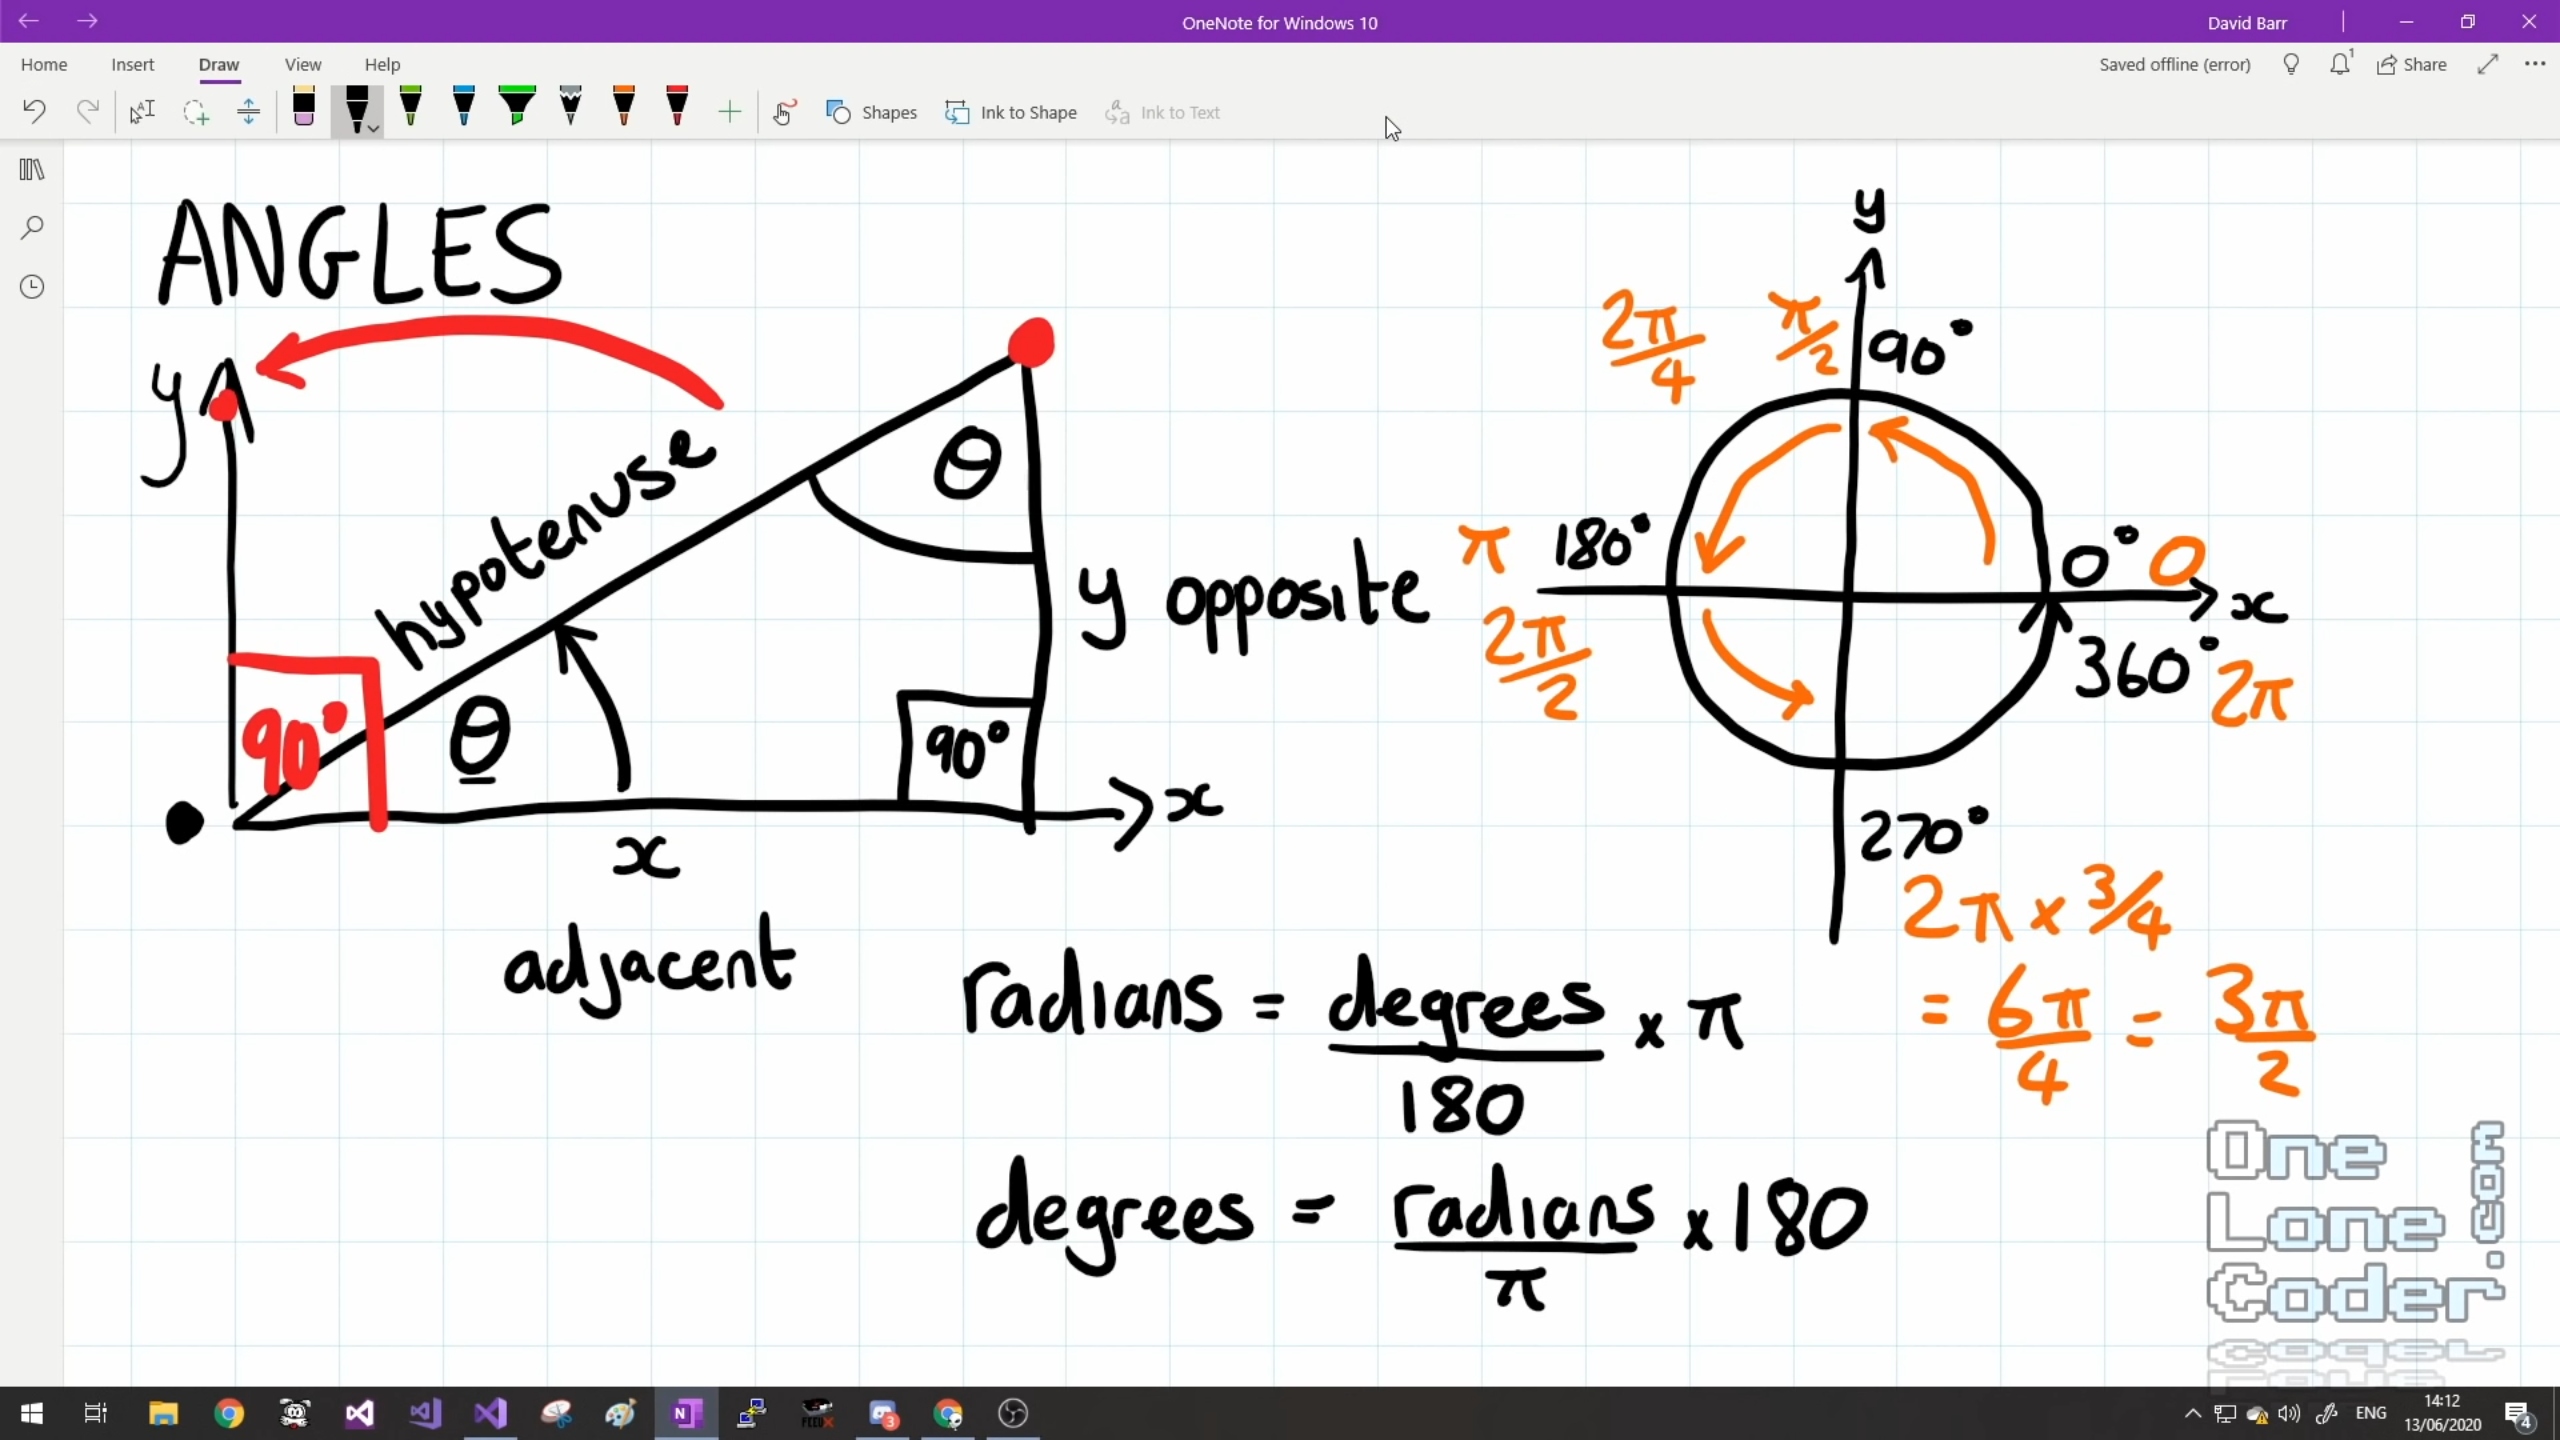 OneNote for Windows 10
David Barr
Home Insert Draw View Help
Saved offline (error)
1
Share
Shapes
Ink to Shape
Ink to Text
ANGLES
y
hypotenuse
θ
90°
θ
90°
y opposite
x
x
adjacent
y
2π/4
π/2
90°
π
180°
2π/2
0°
0
x
360°
2π
270°
2π x 3/4
= 6π/4 = 3π/2
radians = degrees/180 x π
degrees = radians/π x 180
One
Lone
Coder.
com
N
3
ENG
14:12
13/06/2020
4